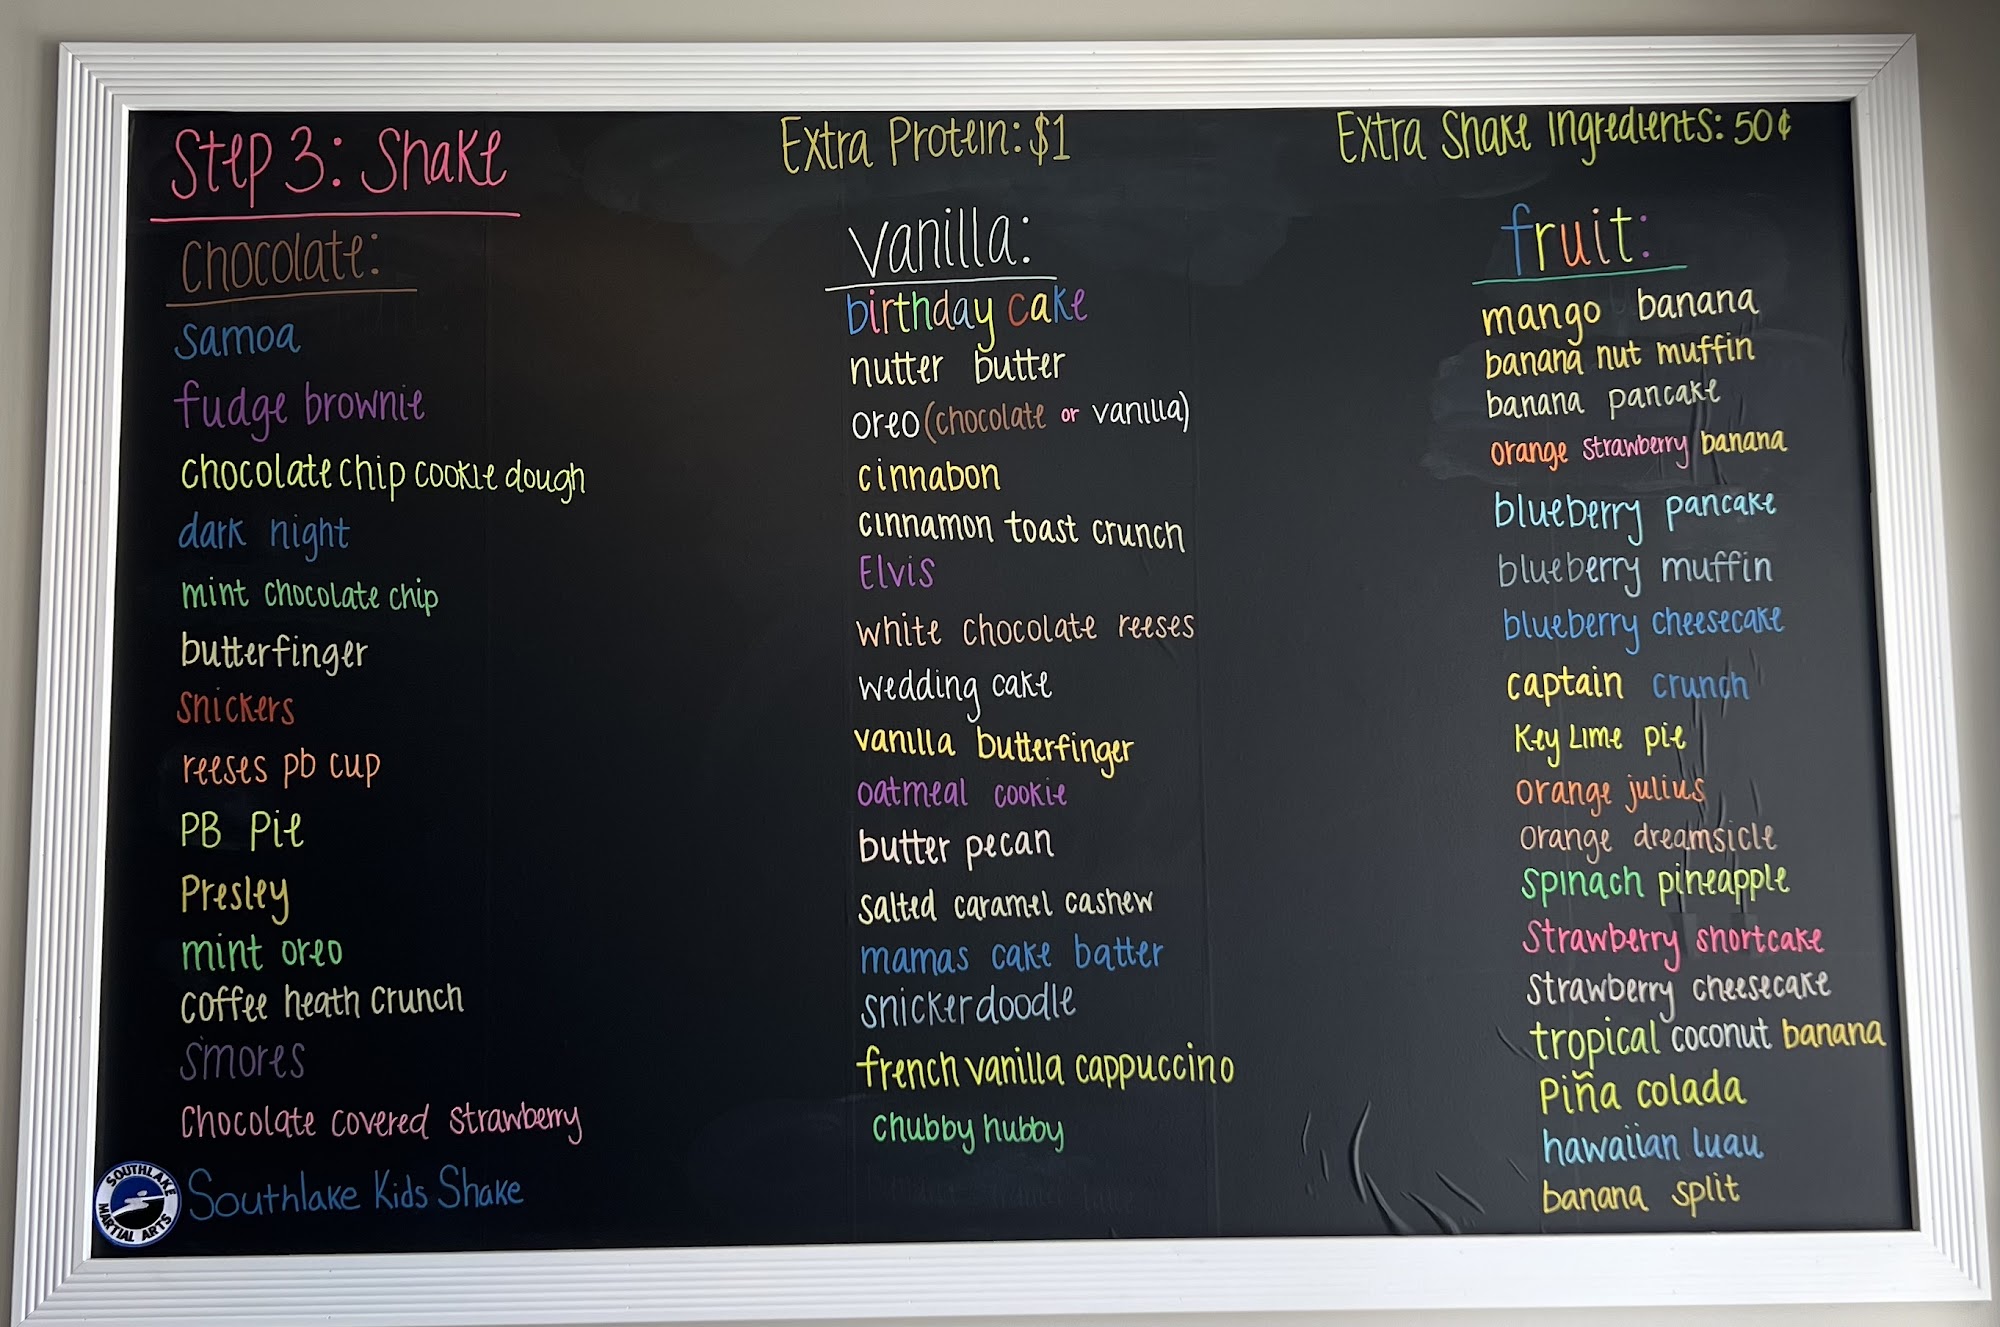 Step 3: Shake
Extra Protein: $1
Extra Shake Ingredients: 50¢
chocolate:
samoa
fudge brownie
chocolate chip cookie dough
dark night
mint chocolate chip
butterfinger
snickers
reeses pb cup
PB Pie
Presley
mint oreo
coffee heath crunch
s'mores
Chocolate covered strawberry
SOUTHLAKE MARTIAL ARTS
Southlake Kids Shake
vanilla:
birthday cake
nutter butter
oreo (chocolate or vanilla)
cinnabon
cinnamon toast crunch
Elvis
white chocolate reeses
wedding cake
vanilla butterfinger
oatmeal cookie
butter pecan
salted caramel cashew
mamas cake batter
snickerdoodle
french vanilla cappuccino
chubby hubby
fruit:
mango banana
banana nut muffin
banana pancake
orange strawberry banana
blueberry pancake
blueberry muffin
blueberry cheesecake
captain crunch
Key Lime pie
orange julius
orange dreamsicle
spinach pineapple
Strawberry shortcake
Strawberry cheesecake
tropical coconut banana
Piña colada
hawaiian luau
banana split